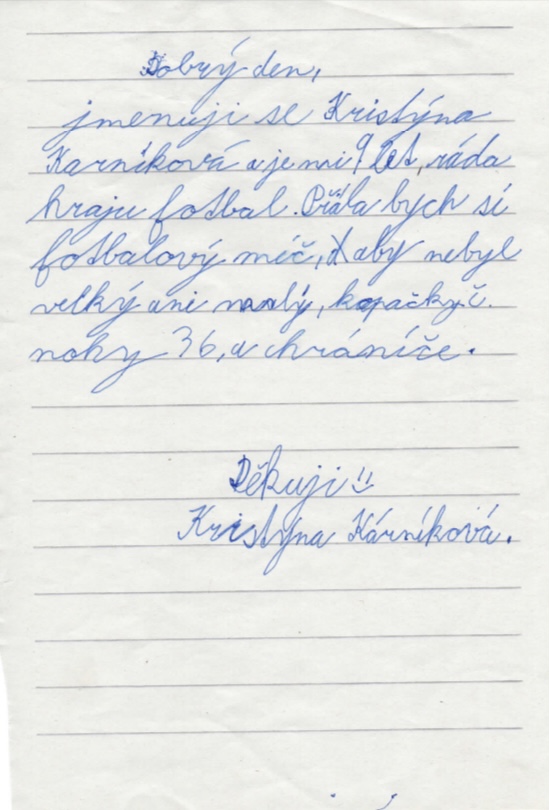 Dobrý den,
jmenuji se Kristýna
Karníková a je mi 9 let, ráda
hraju fotbal. Přála bych si
fotbalový míč, aby nebyl
velký ani malý, kopačky č.
nohy 36, a chrániče.
Děkuji !!
Kristýna Kárníková.